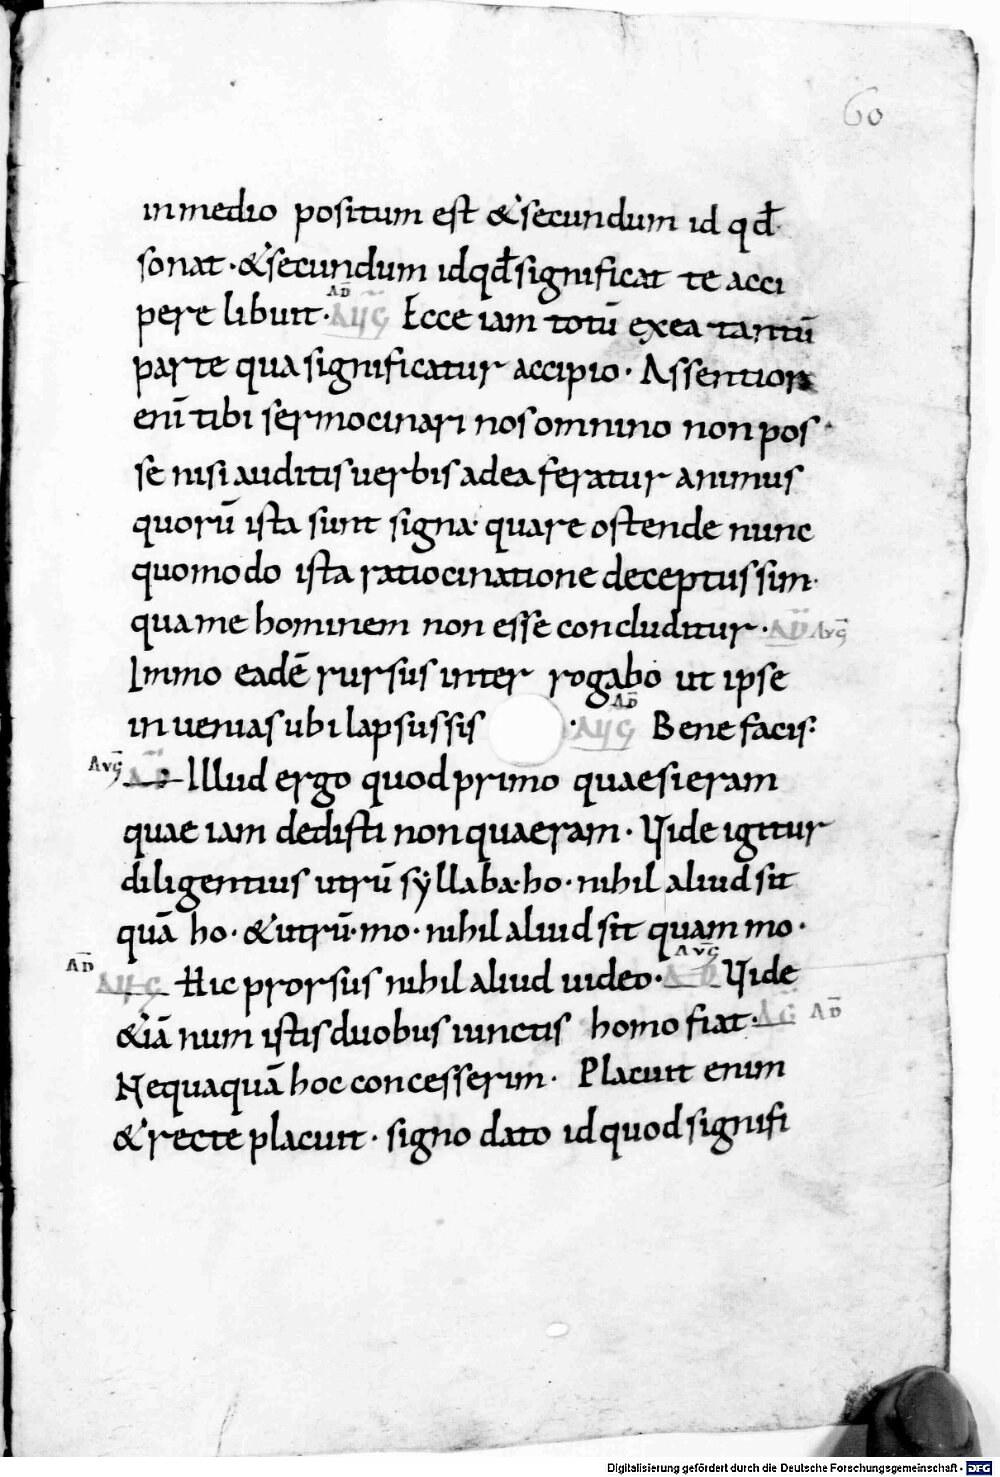 60
inmedio positum est & secundum id qđ
sonat · & secundum id qđ significat te acci
pere libuit · AUḠ AD̄ Ecce iam totū ex ea tantū
parte qua significatur accipio · Assentior
enī tibi sermocinari nos omnino non pos
se nisi auditis uerbis ad ea feratur animus
quorū ista sunt signa · quare ostende nunc
quomodo ista ratiocinatione deceptus sim ·
qua me hominem non esse concluditur · AD̄ AVḠ
Immo eadē rursus inter rogabo ut ipse
in uenias ubi lapsus sis · AUḠ AD̄ Bene facis ·
AVḠ AD̄ Illud ergo quod primo quaesieram
quae iam dedisti non quaeram · Vide igitur
diligentius utrū syllaba · ho · nihil aliud sit
quā ho · & utrū · mo · nihil aliud sit quam mo ·
AD̄ AUḠ Hic prorsus nihil aliud uideo · AD̄ AVḠ Vide
& iā num istis duobus iunctis homo fiat · AḠ AD̄
Nequaquā hoc concesserim · Placuit enim
& recte placuit · signo dato id quod signifi
Digitalisierung gefördert durch die Deutsche Forschungsgemeinschaft - DFG